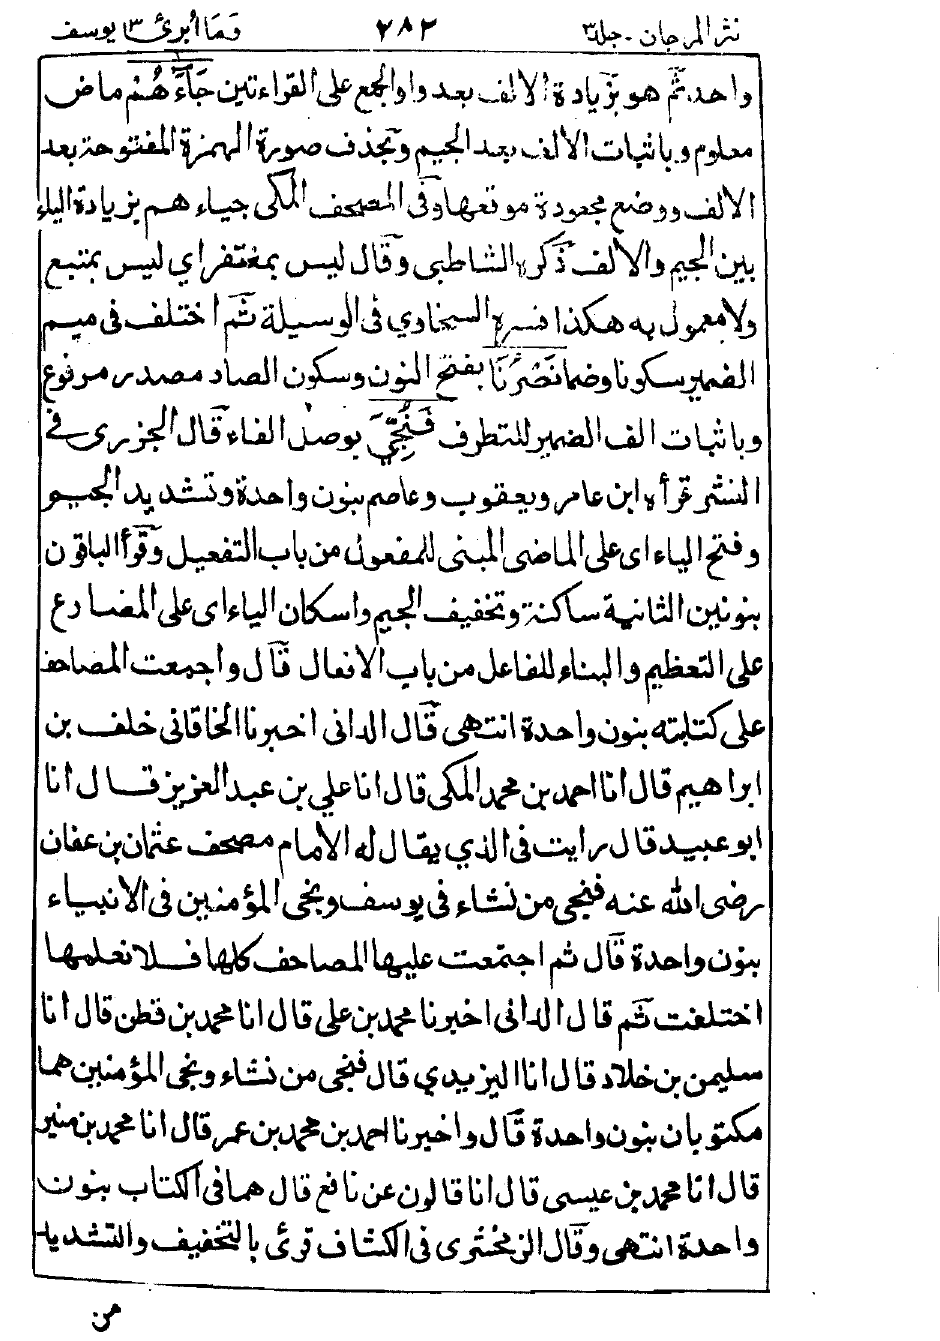 نثر المرجان - جلد ٣
٢٨٢
وَمَا أُبَرِّئُ ١٣ يوسف
واحد ثم هو بزيادة الالف بعد واو الجمع على القراءتين جَآءَهُمْ ماض
معلوم وباثبات الالف بعد الجيم وبحذف صورة الهمزة المفتوحة بعد
الالف ووضع مجعودة موقعها وفى المصحف المكى جياءهم بزيادة الياء
بين الجيم والالف ذكره الشاطبى وقال ليس بمغتفر اي ليس بمتبع
ولا معمول به هكذا فسره السخاوي فى الوسيلة ثم اختلف فى ميم
الضمير سكونا وضما نَصْرُنَا بفتح النون وسكون الصاد مصدر مرفوع
وباثبات الف الضمير للتطرف فَنُجِّيَ بوصل الفاء قال الجزرى فى
النشر قرأه ابن عامر ويعقوب وعاصم بنون واحدة وتشديد الجيم
وفتح الياء اى على الماضى المبنى للمفعول من باب التفعيل وقرأ الباقون
بنونين الثانية ساكنة وتخفيف الجيم واسكان الياء اى على المضارع
على التعظيم والبناء للفاعل من باب الافعال قال واجمعت المصاحف
على كتابته بنون واحدة انتهى قال الدانى اخبرنا الخاقانى خلف بن
ابراهيم قال انا احمد بن محمد المكى قال انا علي بن عبد العزيز قال انا
ابو عبيد قال رايت فى الذي يقال له الامام مصحف عثمان بن عفان
رضى الله عنه فنجى من نشاء فى يوسف ونجى المؤمنين فى الانبياء
بنون واحدة قال ثم اجتمعت عليها المصاحف كلها فلا نعلمها
اختلفت ثم قال الدانى اخبرنا محمد بن على قال انا محمد بن قطن قال انا
سليمن بن خلاد قال انا اليزيدي قال فنجى من نشاء ونجى المؤمنين هما
مكتوبان بنون واحدة قال واخبرنا احمد بن محمد بن عمر قال انا محمد بن منير
قال انا محمد بن عيسى قال انا قالون عن نافع قال هما فى الكتاب بنون
واحدة انتهى وقال الزمخشرى فى الكشاف قرئ بالتخفيف والتشديد
من